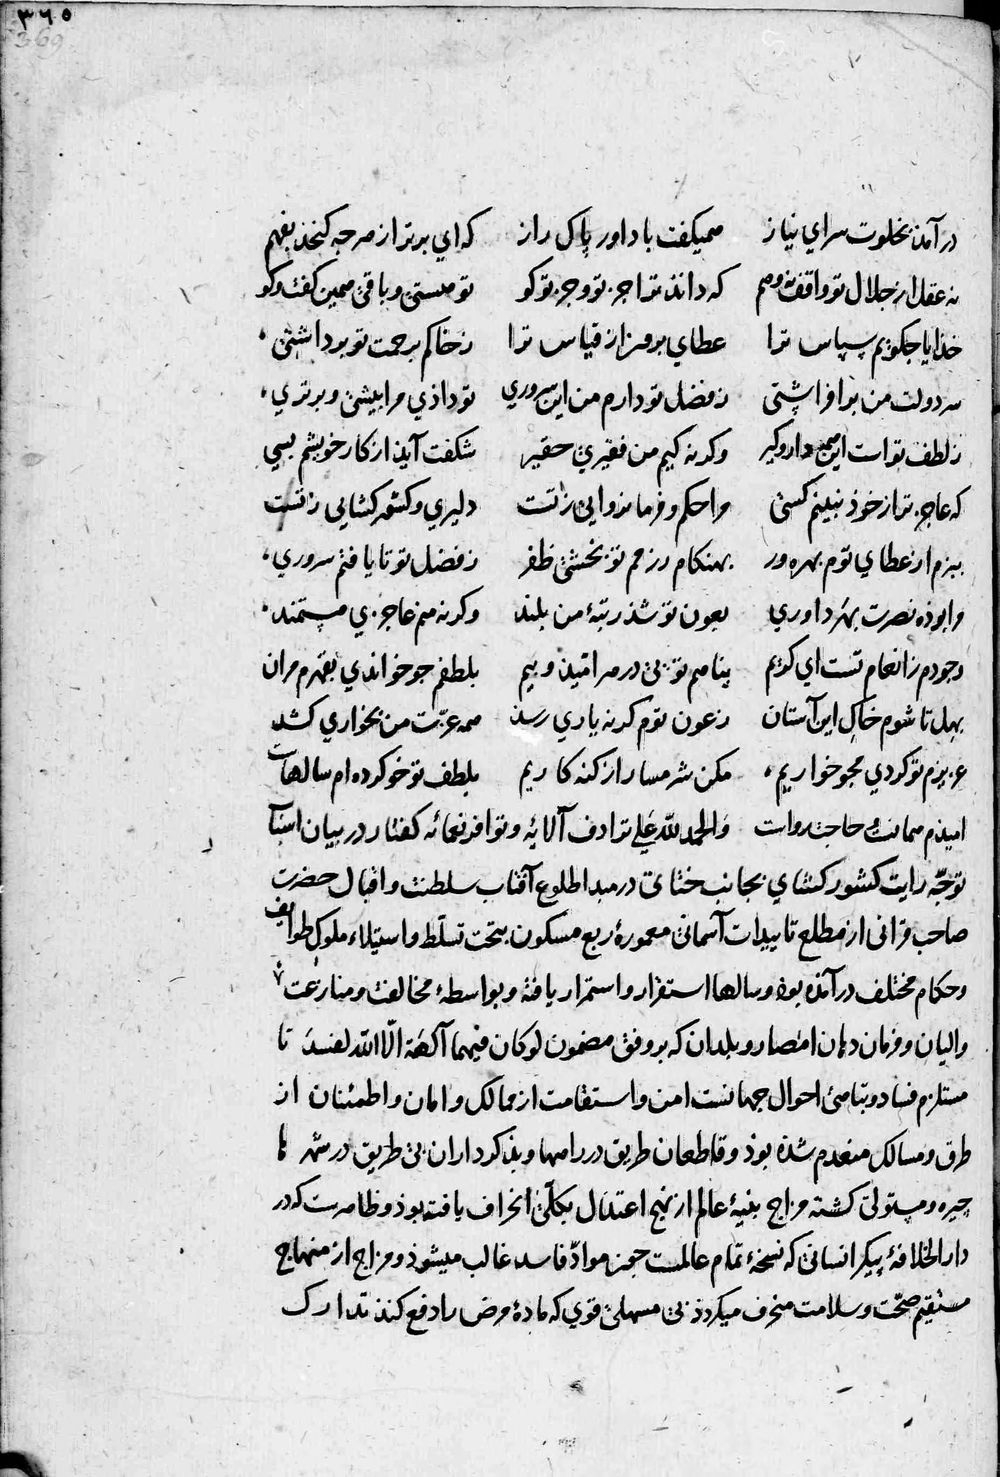 ٣٦٥
369
درآمد بخلوت سراي نیاز همیکفت با داور پاک راز که اي برتر از هرچه کنجد بفهم
نه عقل از جلال تو واقف نه وهم که داند ترا جز تو و جز تو کو تو هستی و باقی همین کفت و کو
خدایا چکویم سپاس ترا عطاي برون از قیاس ترا ز خاکم برحمت تو برداشتی
سر دولت من برافراشتی ز فضل تو دارم من این سروري تو داذي مرا بیشی و برتري
ز لطف تو است این همه دار و کیر وکرنه کیم من فقیري حقیر شکفت آید از کار خویشم بسي
که عاجزتر از خوذ نبینم کسی مرا حکم و فرمانروایی ز تست دلیري و کشور کشایی ز تست
ببزم از عطاي توم بهره ور بهنکام رزمم تو بخشی ظفر ز فضل تو تا یافتم سروري
مرا بوده نصرت بهر داوري بعون تو شذ رتبهٔ من بلند وکرنه منم عاجزي مستمند
وجودم ز انعام تست اي کریم پناهم تویی در هر امید و بیم بلطفم چو خواندي بقهرم مران
بهل تا شوم خاک این آستان ز عون توم کر نه یاري رسذ همه عزت من بخواري کشد
عزیزم تو کردي مجو خواریم مکن شرمسار از کنه کاریم بلطف تو خو کرده ام سالهاست
امیذم همانست حاجت رواست والحمد لله علی ترادف آلائه و توافر نعمائه کفتار در بیان اسباب
توجّه رایت کشورکشاي بجانب ختاي در مبدا طلوع آفتاب سلطنت و اقبال حضرت
صاحب قرانی از مطلع تاییدات آسمانی معمورهٔ ربع مسکون بتحت تسلّط و استیلاء ملوک طوایف
و حکام مختلف درآمذه بوذ و سالها استقرار و استمرار یافته و بواسطهٔ مخالفت و منازعت
والیان و فرمان دهان امصار و بلدان که بر وفق مضمون لو کان فیهما آلهة الّا الله لفسدتا
مستلزم فساد و تباهی احوال جهانست امن و استقامت از ممالک و امان و اطمئنان از
طرق و مسالک منعدم شذه بوذ و قاطعان طریق در راهها و بذکرداران بی طریق در شهرها
چیره و مستولی کشته مزاج بنیهٔ عالم از نهج اعتدال بکلّی انحراف یافته بوذ و ظاهرست که در
دار الخلافهٔ پیکر انسانی که نسخهٔ تمام عالمست چون موادّ فاسد غالب میشوذ و مزاج از منهاج
مستقیم صحّت و سلامت منحرف میکردذ بی مسهلی قوي که مادهٔ مرض را دفع کند تدارک